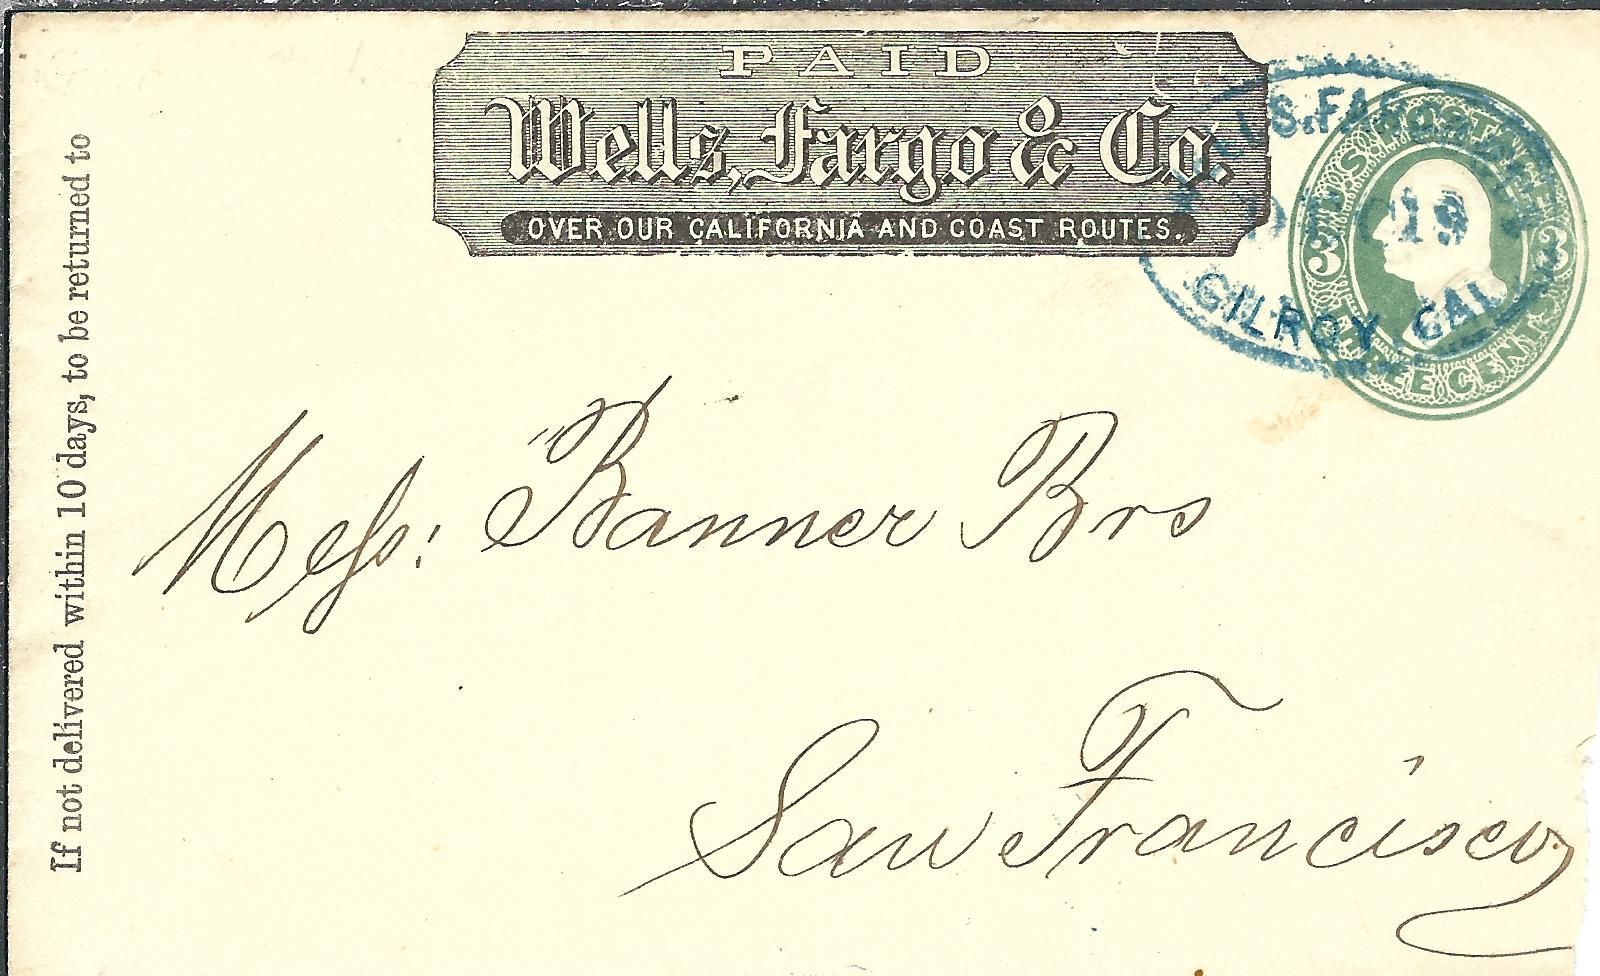 PAID
Wells, Fargo & Co.
OVER OUR CALIFORNIA AND COAST ROUTES.
19
GILROY, CAL.
U.S. POSTAGE
3 3
THREE CENTS
If not delivered within 10 days, to be returned to
Mess: "Banner Brs
San Francisco